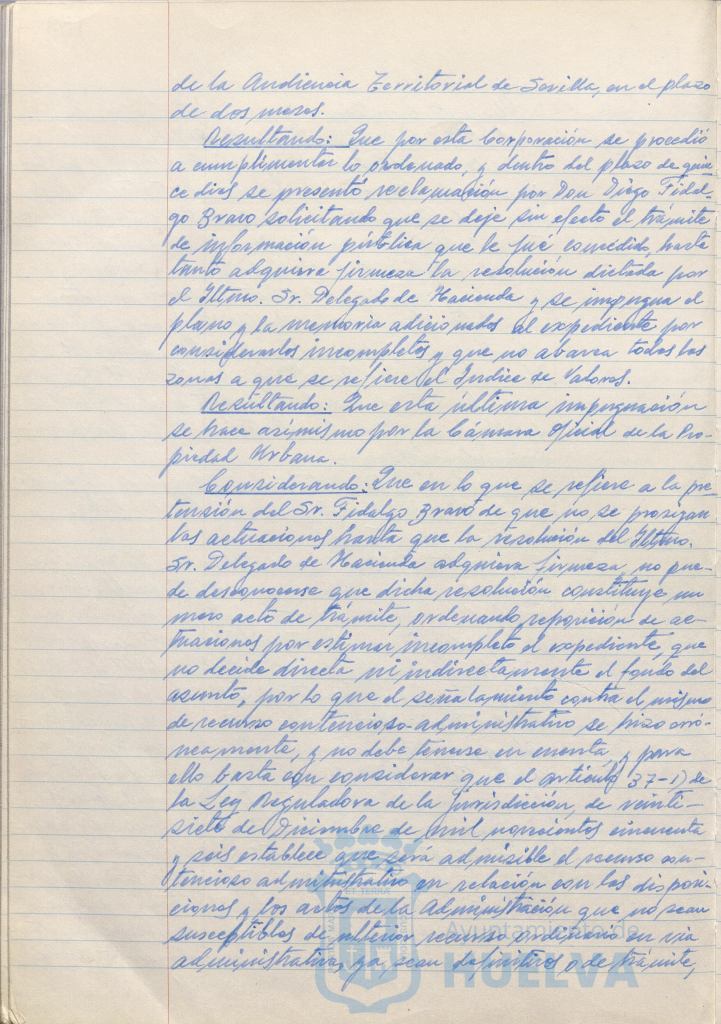 de la Audiencia Territorial de Sevilla, en el plazo
de dos meses.
Resultando: Que por esta Corporación se procedió
a cumplimentar lo ordenado, y dentro del plazo de quin-
ce dias se presentó reclamación por Don Diego Fidal-
go Bravo solicitando que se deje sin efecto el trámite
de información pública que le fué concedido, hasta
tanto adquiera firmeza la resolución dictada por
el Iltmo. Sr. Delegado de Hacienda y se impugna el
plano y la memoria adicionados al expediente por
considerarlos incompletos y que no abarca todas las
zonas a que se refiere el Indice de Valores.
Resultando: Que esta última impugnación
se hace asimismo por la Cámara Oficial de la Pro-
piedad Urbana.
Considerando: Que en lo que se refiere a la pre-
tensión del Sr. Fidalgo Bravo de que no se prosigan
las actuaciones hasta que la resolución del Iltmo.
Sr. Delegado de Hacienda adquiera firmeza, no pue-
de desconocerse que dicha resolución constituye un
mero acto de trámite, ordenando reposición de ac-
tuaciones por estimar incompleto el expediente, que
no decide directa ni indirectamente el fondo del
asunto, por lo que el señalamiento contra el mismo
de recurso contencioso-administrativo se hizo erró-
neamente, y no debe tenerse en cuenta, y para
ello basta con considerar que el artículo 37-1) de
la Ley Reguladora de la Jurisdicción, de veinti-
siete de Diciembre de mil novecientos cincuenta
y seis establece que será admisible el recurso con-
tencioso administrativo en relación con las disposi-
ciones y los actos de la Administración que no sean
susceptibles de ulterior recurso ordinario en via
administrativa, ya sean definitivos o de trámite,
Ayuntamiento de
HUELVA